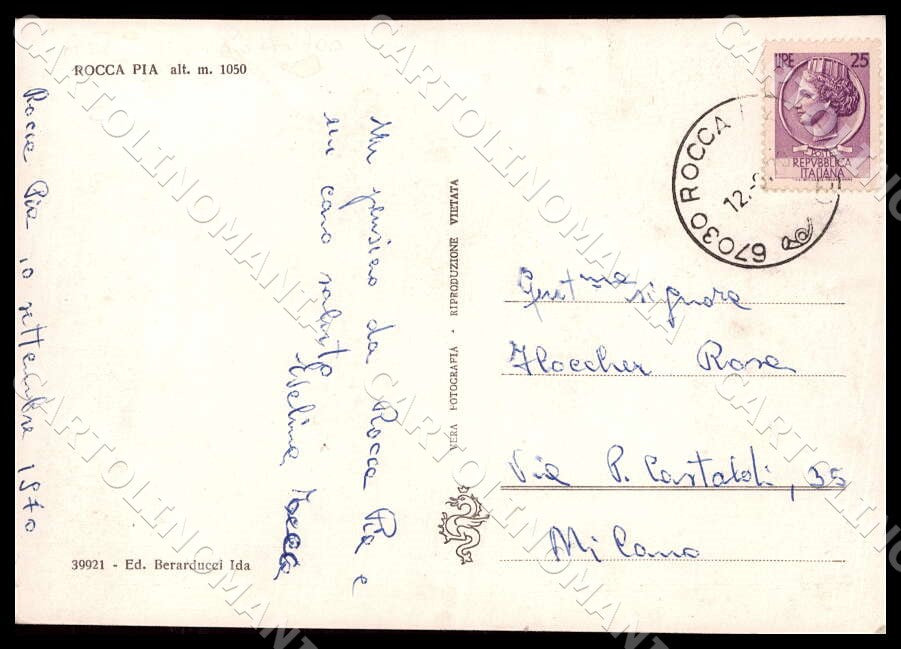 ROCCA PIA alt. m. 1050
Rocca Pia 10 settembre 1970
Un pensiero da Rocca Pia e
un caro saluto
Evelina
39921 - Ed. Berarducci Ida
VERA FOTOGRAFIA - RIPRODUZIONE VIETATA
LIRE 25
POSTE
REPVBBLICA
ITALIANA
67030 ROCCA
12.
Gent.ma signora
Floccher Rosa
Via P. Castaldi, 35
Milano
CARTOLINOMANTIKA